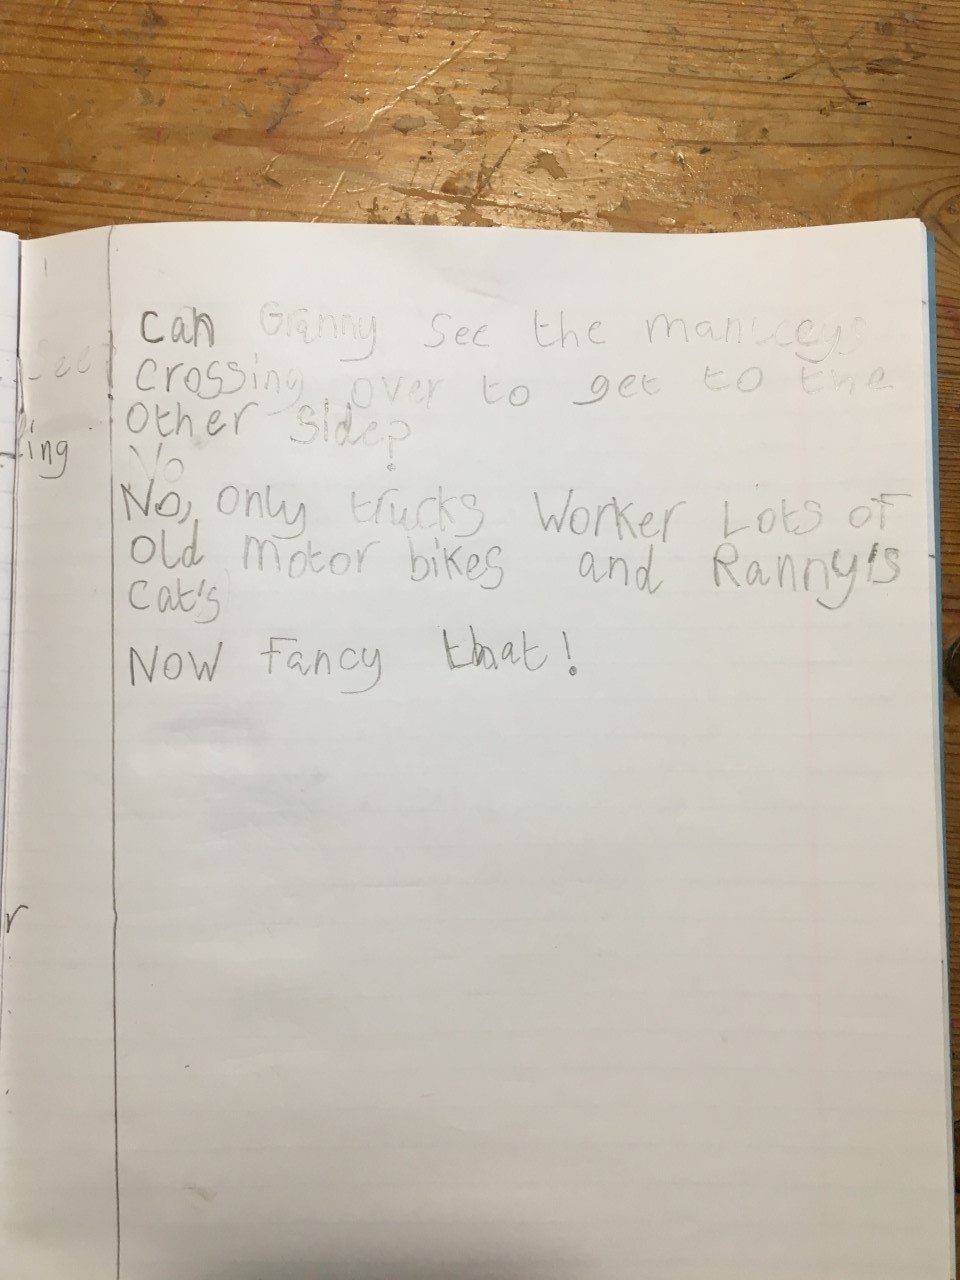 Can Granny see the
crossing over to get to the
other side?
No
No, only trucks Worker Lots of
old motor bikes and Ranny's
Cat's
Now fancy that!
see
ing
r